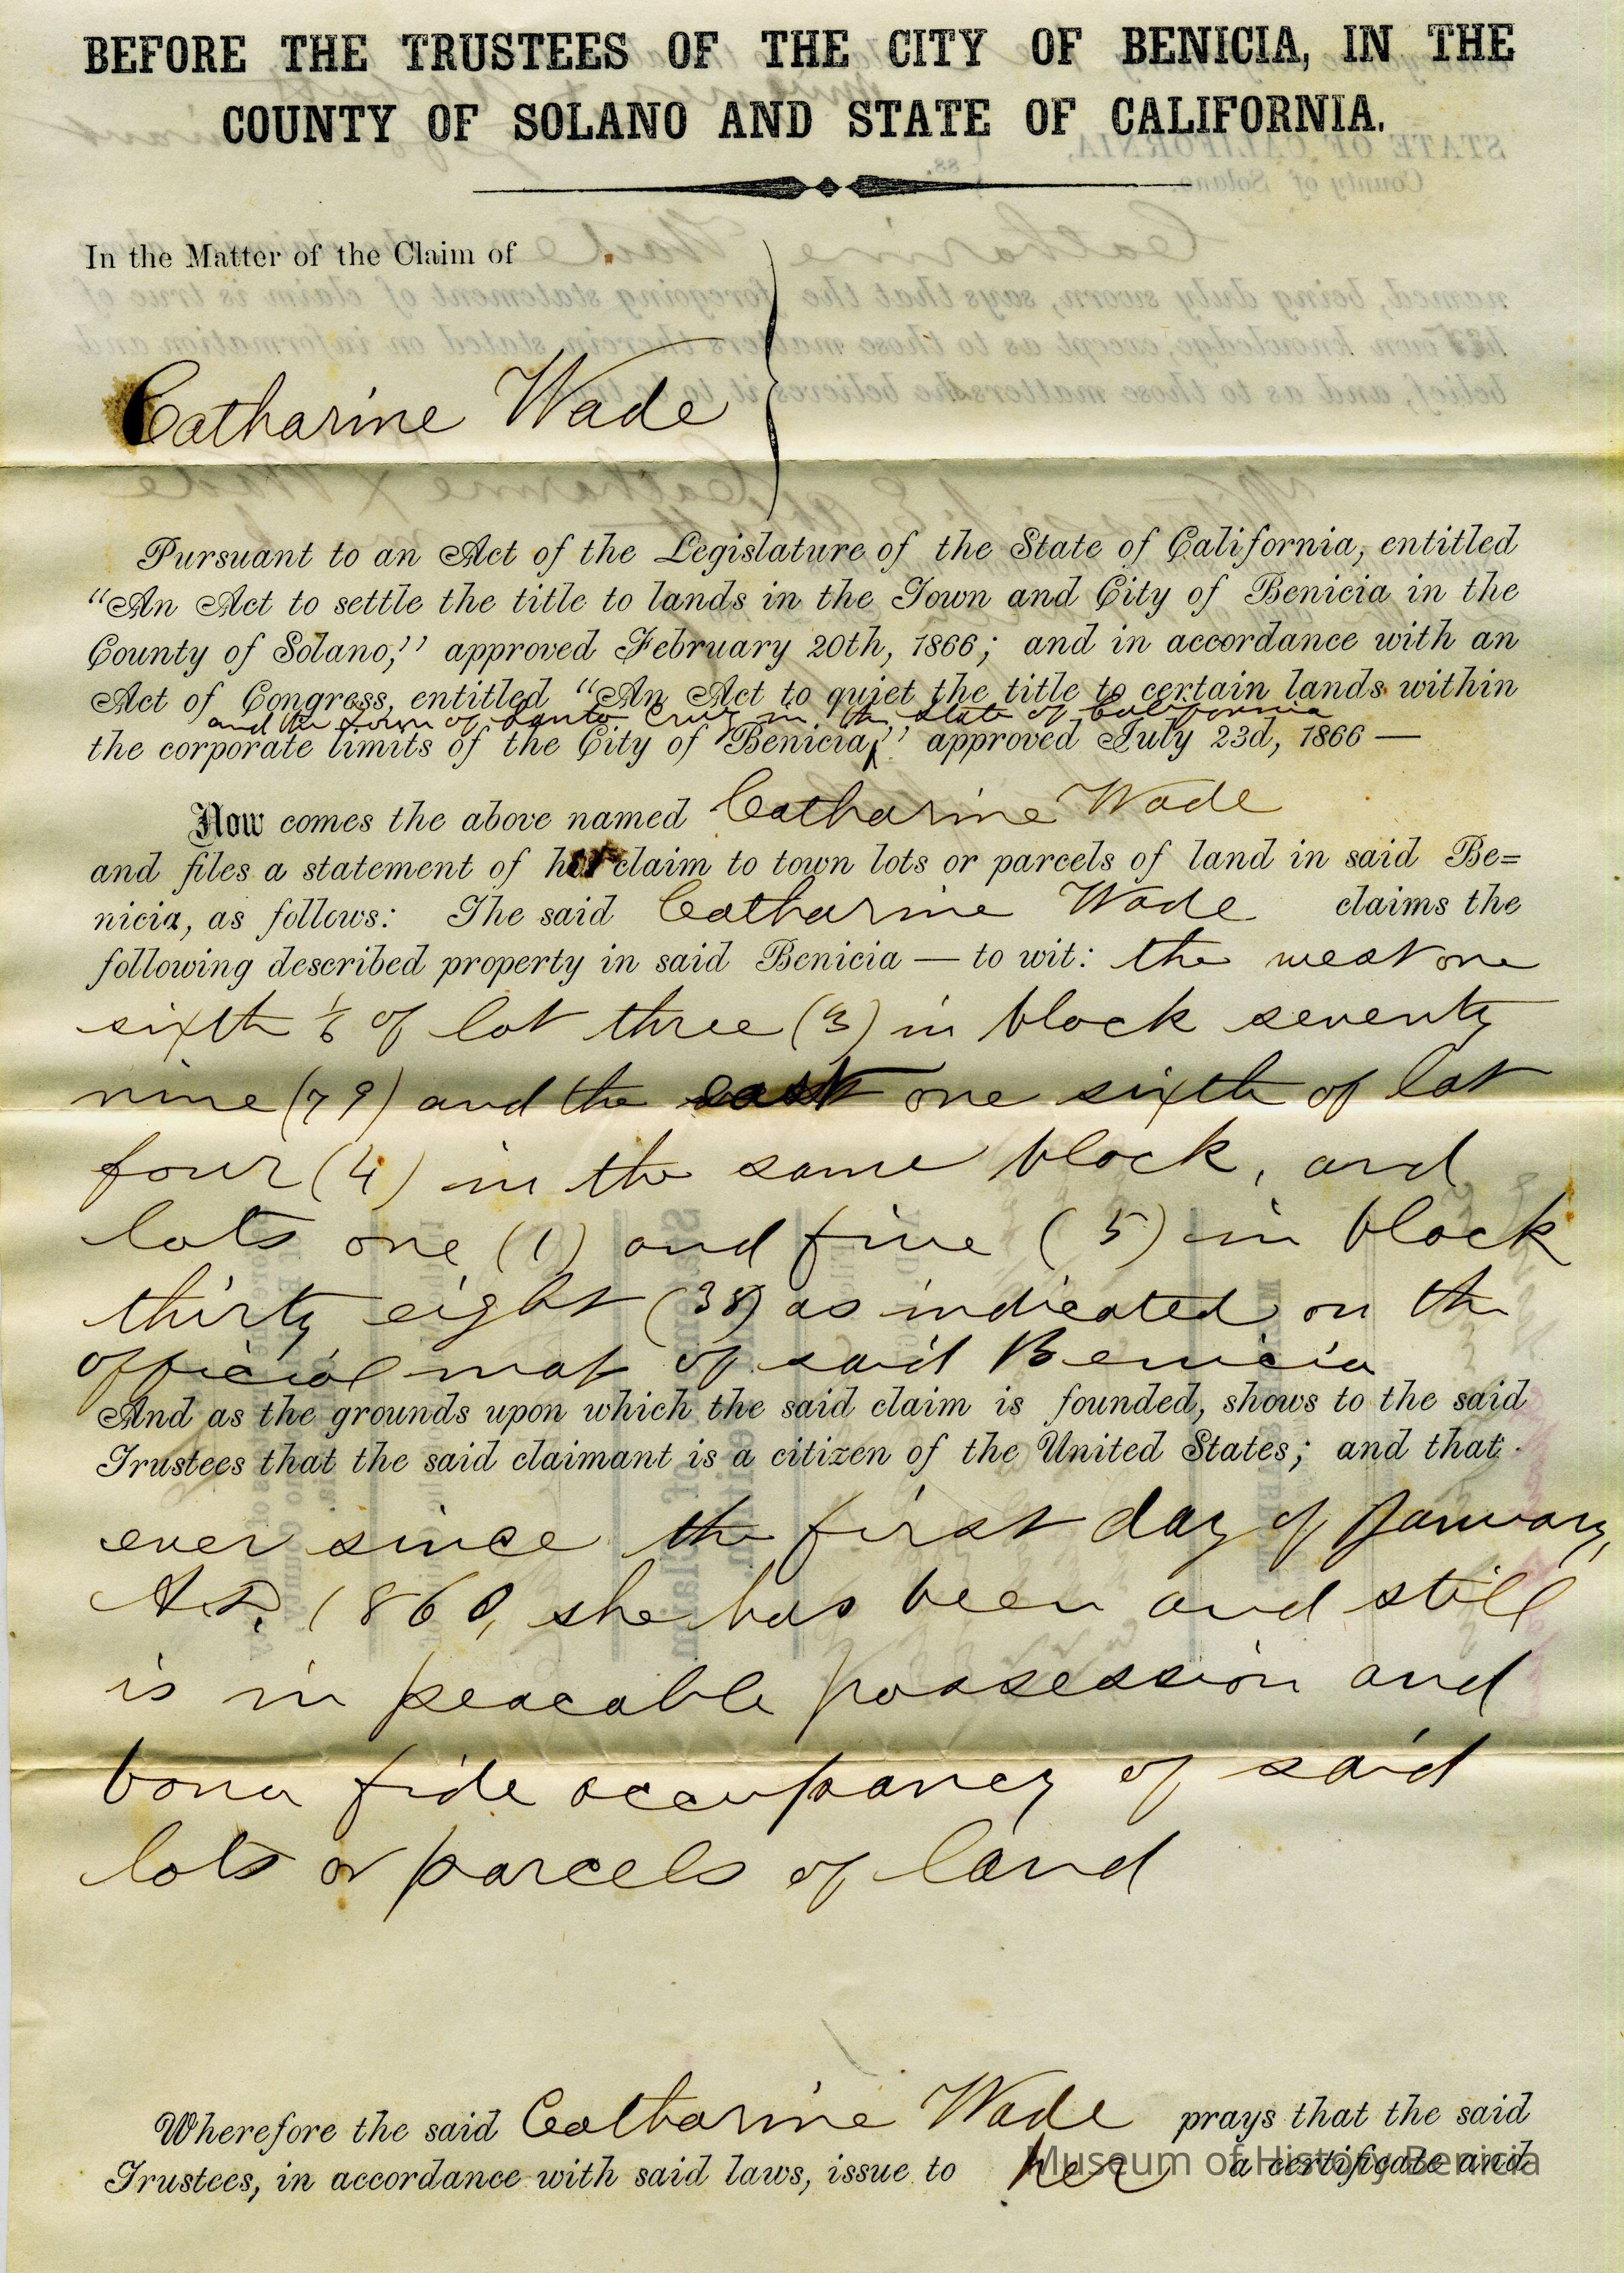 BEFORE THE TRUSTEES OF THE CITY OF BENICIA, IN THE
COUNTY OF SOLANO AND STATE OF CALIFORNIA.
In the Matter of the Claim of
Catharine Wade
Pursuant to an Act of the Legislature of the State of California, entitled
"An Act to settle the title to lands in the Town and City of Benicia in the
County of Solano," approved February 20th, 1866; and in accordance with an
Act of Congress, entitled "An Act to quiet the title to certain lands within
and the Town of Santa Cruz in the State of California
the corporate limits of the City of Benicia," approved July 23d, 1866 —
Now comes the above named Catharine Wade
and files a statement of her claim to town lots or parcels of land in said Be=
nicia, as follows: The said Catharine Wade claims the
following described property in said Benicia — to wit: the west one
sixth 1/6 of lot three (3) in block seventy
nine (79) and the east one sixth of lot
four (4) in the same block, and
lots one (1) and five (5) in block
thirty eight (38) as indicated on the
official map of said Benicia
And as the grounds upon which the said claim is founded, shows to the said
Trustees that the said claimant is a citizen of the United States; and that
ever since the first day of January,
A.D. 1860, she has been and still
is in peacable possession and
bona fide occupancy of said
lots or parcels of land
Wherefore the said Catharine Wade prays that the said
Trustees, in accordance with said laws, issue to her a certificate and
Museum of History Benicia